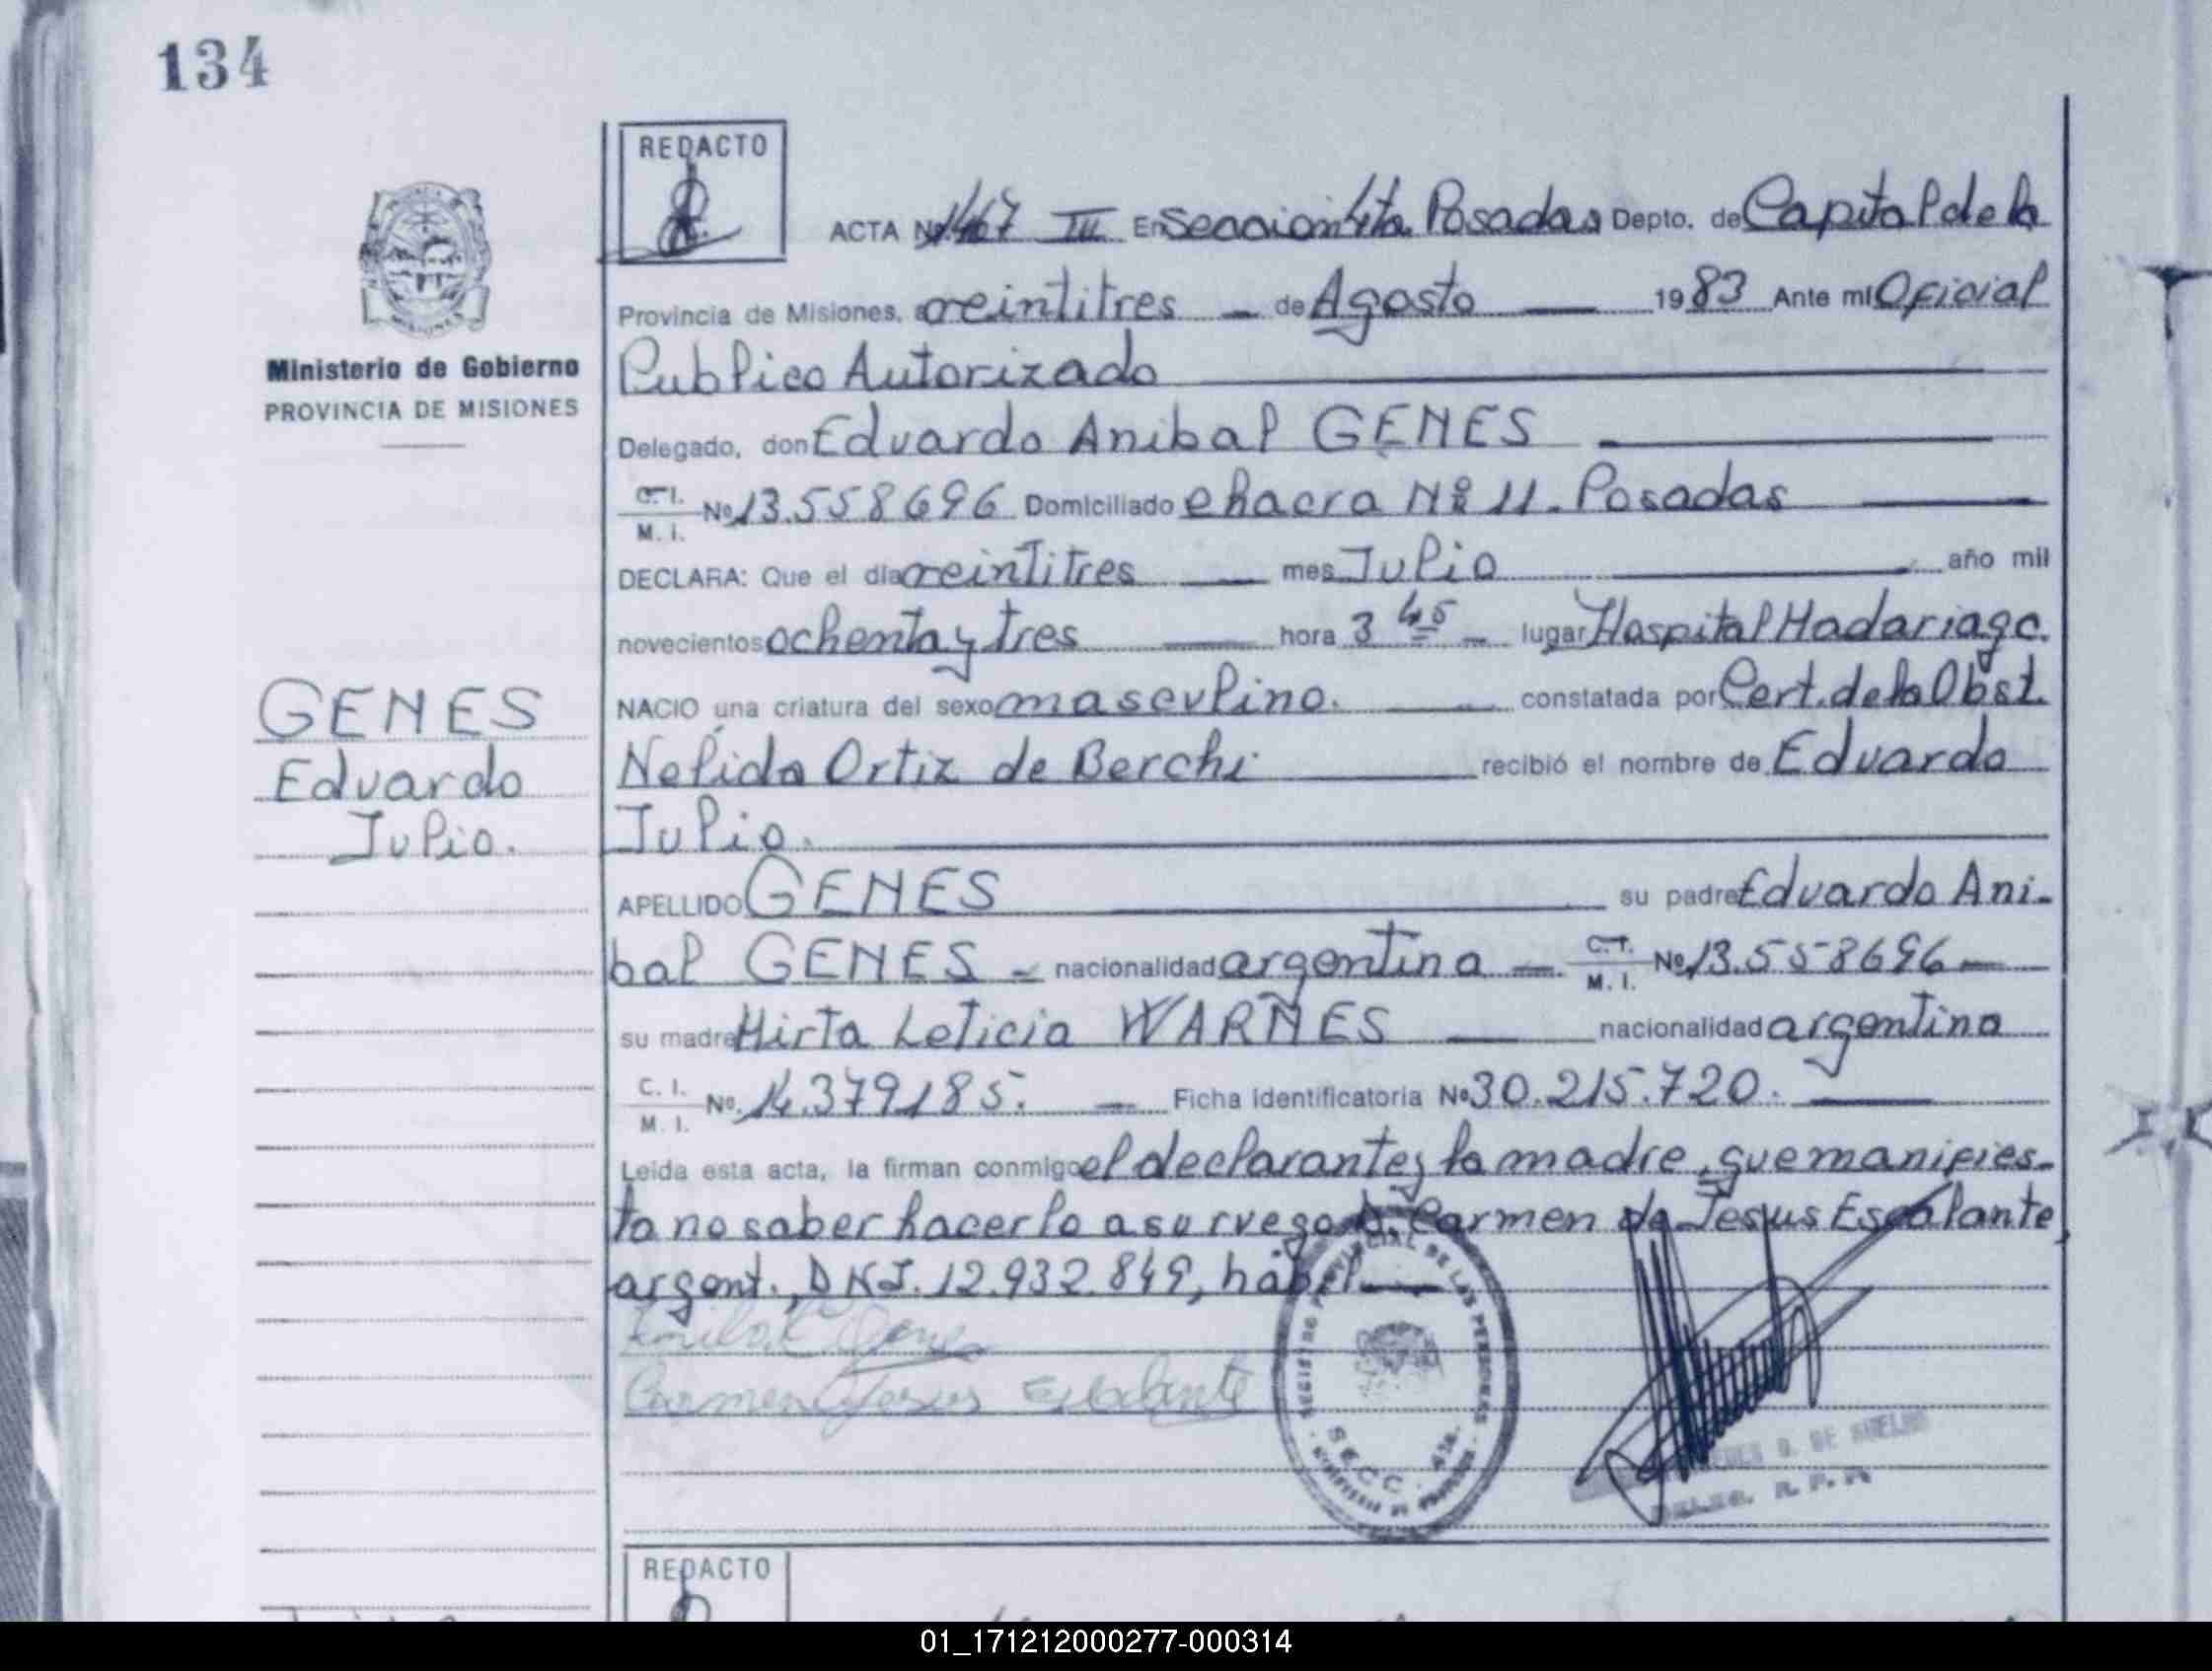 134
REDACTO
ACTA Nº 1467 III En Seccion 4ta. Posadas Depto. de Capital de la
Provincia de Misiones, a veintitres — de Agosto — 1983 Ante mi Oficial
Publico Autorizado
Ministerio de Gobierno
PROVINCIA DE MISIONES
Delegado, don Eduardo Anibal GENES
C. I.
M. I. Nº 13.558696 Domiciliado chacra Nº 11. Posadas
DECLARA: Que el dia veintitres — mes Julio — año mil
novecientos ochenta y tres — hora 3 45 — lugar Hospital Madariaga.
NACIO una criatura del sexo masculino. — constatada por Cert. de la Obst.
GENES
Eduardo
Julio.
Nelida Ortiz de Berchi — recibió el nombre de Eduardo
Julio.
APELLIDO GENES — su padre Eduardo Ani-
bal GENES — nacionalidad argentina — C. I.
M. I. Nº 13.558696 —
su madre Mirta Leticia WARÑES — nacionalidad argentina
C. I.
M. I. Nº. 14.379185. — Ficha identificatoria Nº 30.215.720. —
Leida esta acta, la firman conmigo el declarante y la madre, que manifies-
ta no saber hacerlo a su ruego D. Carmen de Jesus Escalante,
argent., DNI. 12.932.849, hábil. —
Carmen Jesus Escalante
REGISTRO PROVINCIAL DE LAS PERSONAS
SECC. 4ta.
DE
R. P. P.
REDACTO
01_171212000277-000314